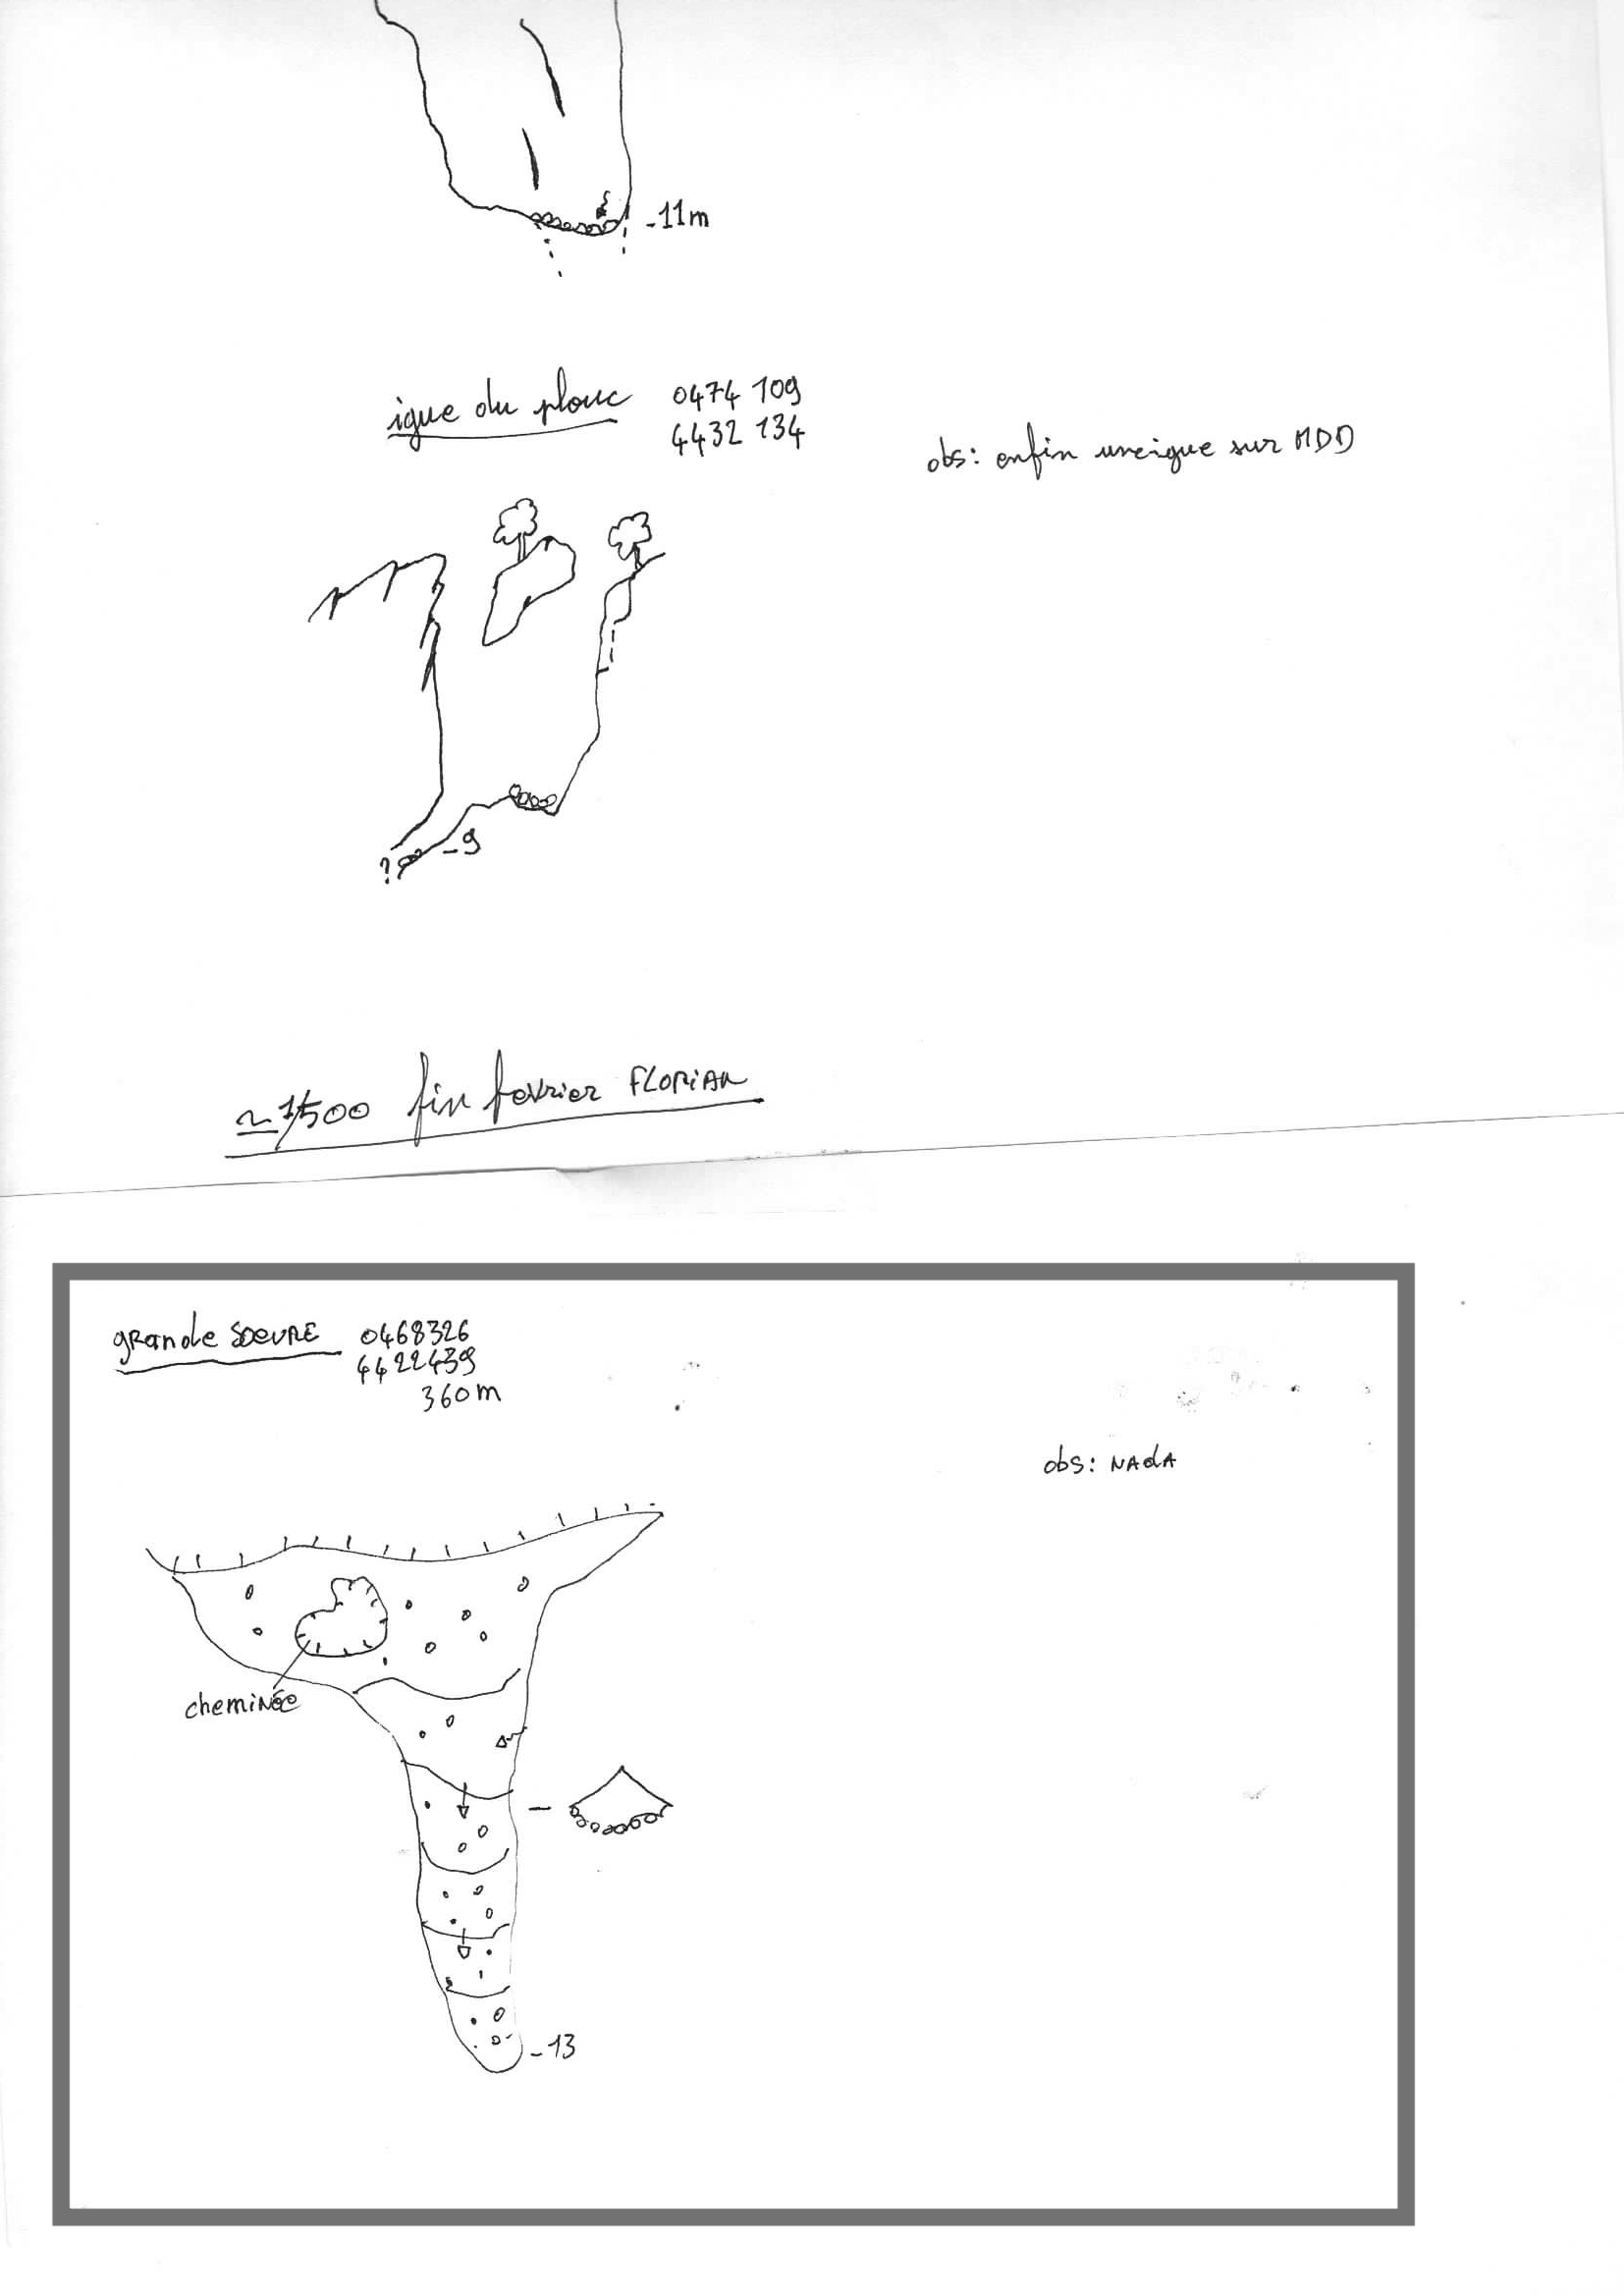 -11m
igue du plouc 0474 109
4432 134
obs: enfin une igue sur MDD
?
-9
~1/500 fin fevrier FLORIAN
grande soeure 0468326
4422439
360m
obs: NAdA
cheminée
-13